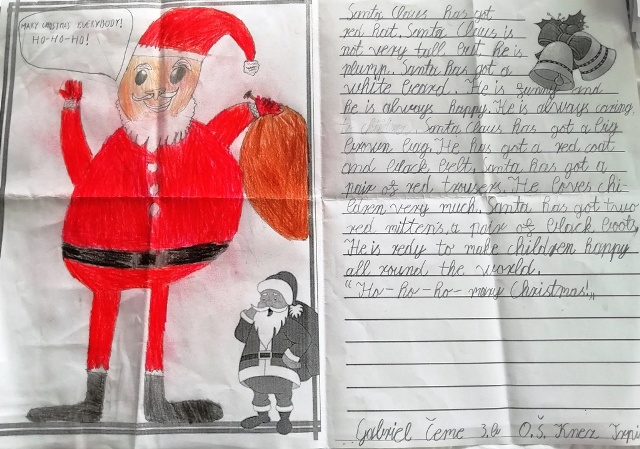 MARY CHRISTMAS EVERYBODY!
HO-HO-HO!
Santa Claus has got
red hat. Santa Claus is
not very tall but he is
plump. Santa has got a
white beard. He is funny and
he is always happy. He is always caring.
Santa Claus has got a big
brown bag. He has got a red coat
and black belt. Santa has got a
pair of red trousers. He loves chi-
ldren very much. Santa has got two
red mittens, a pair of black boots,
He is redy to make children happy
all round the world.
"Ho-ho-ho- mary Christmas!„
Gabriel Čeme 3.b O.Š. Knez Trpi